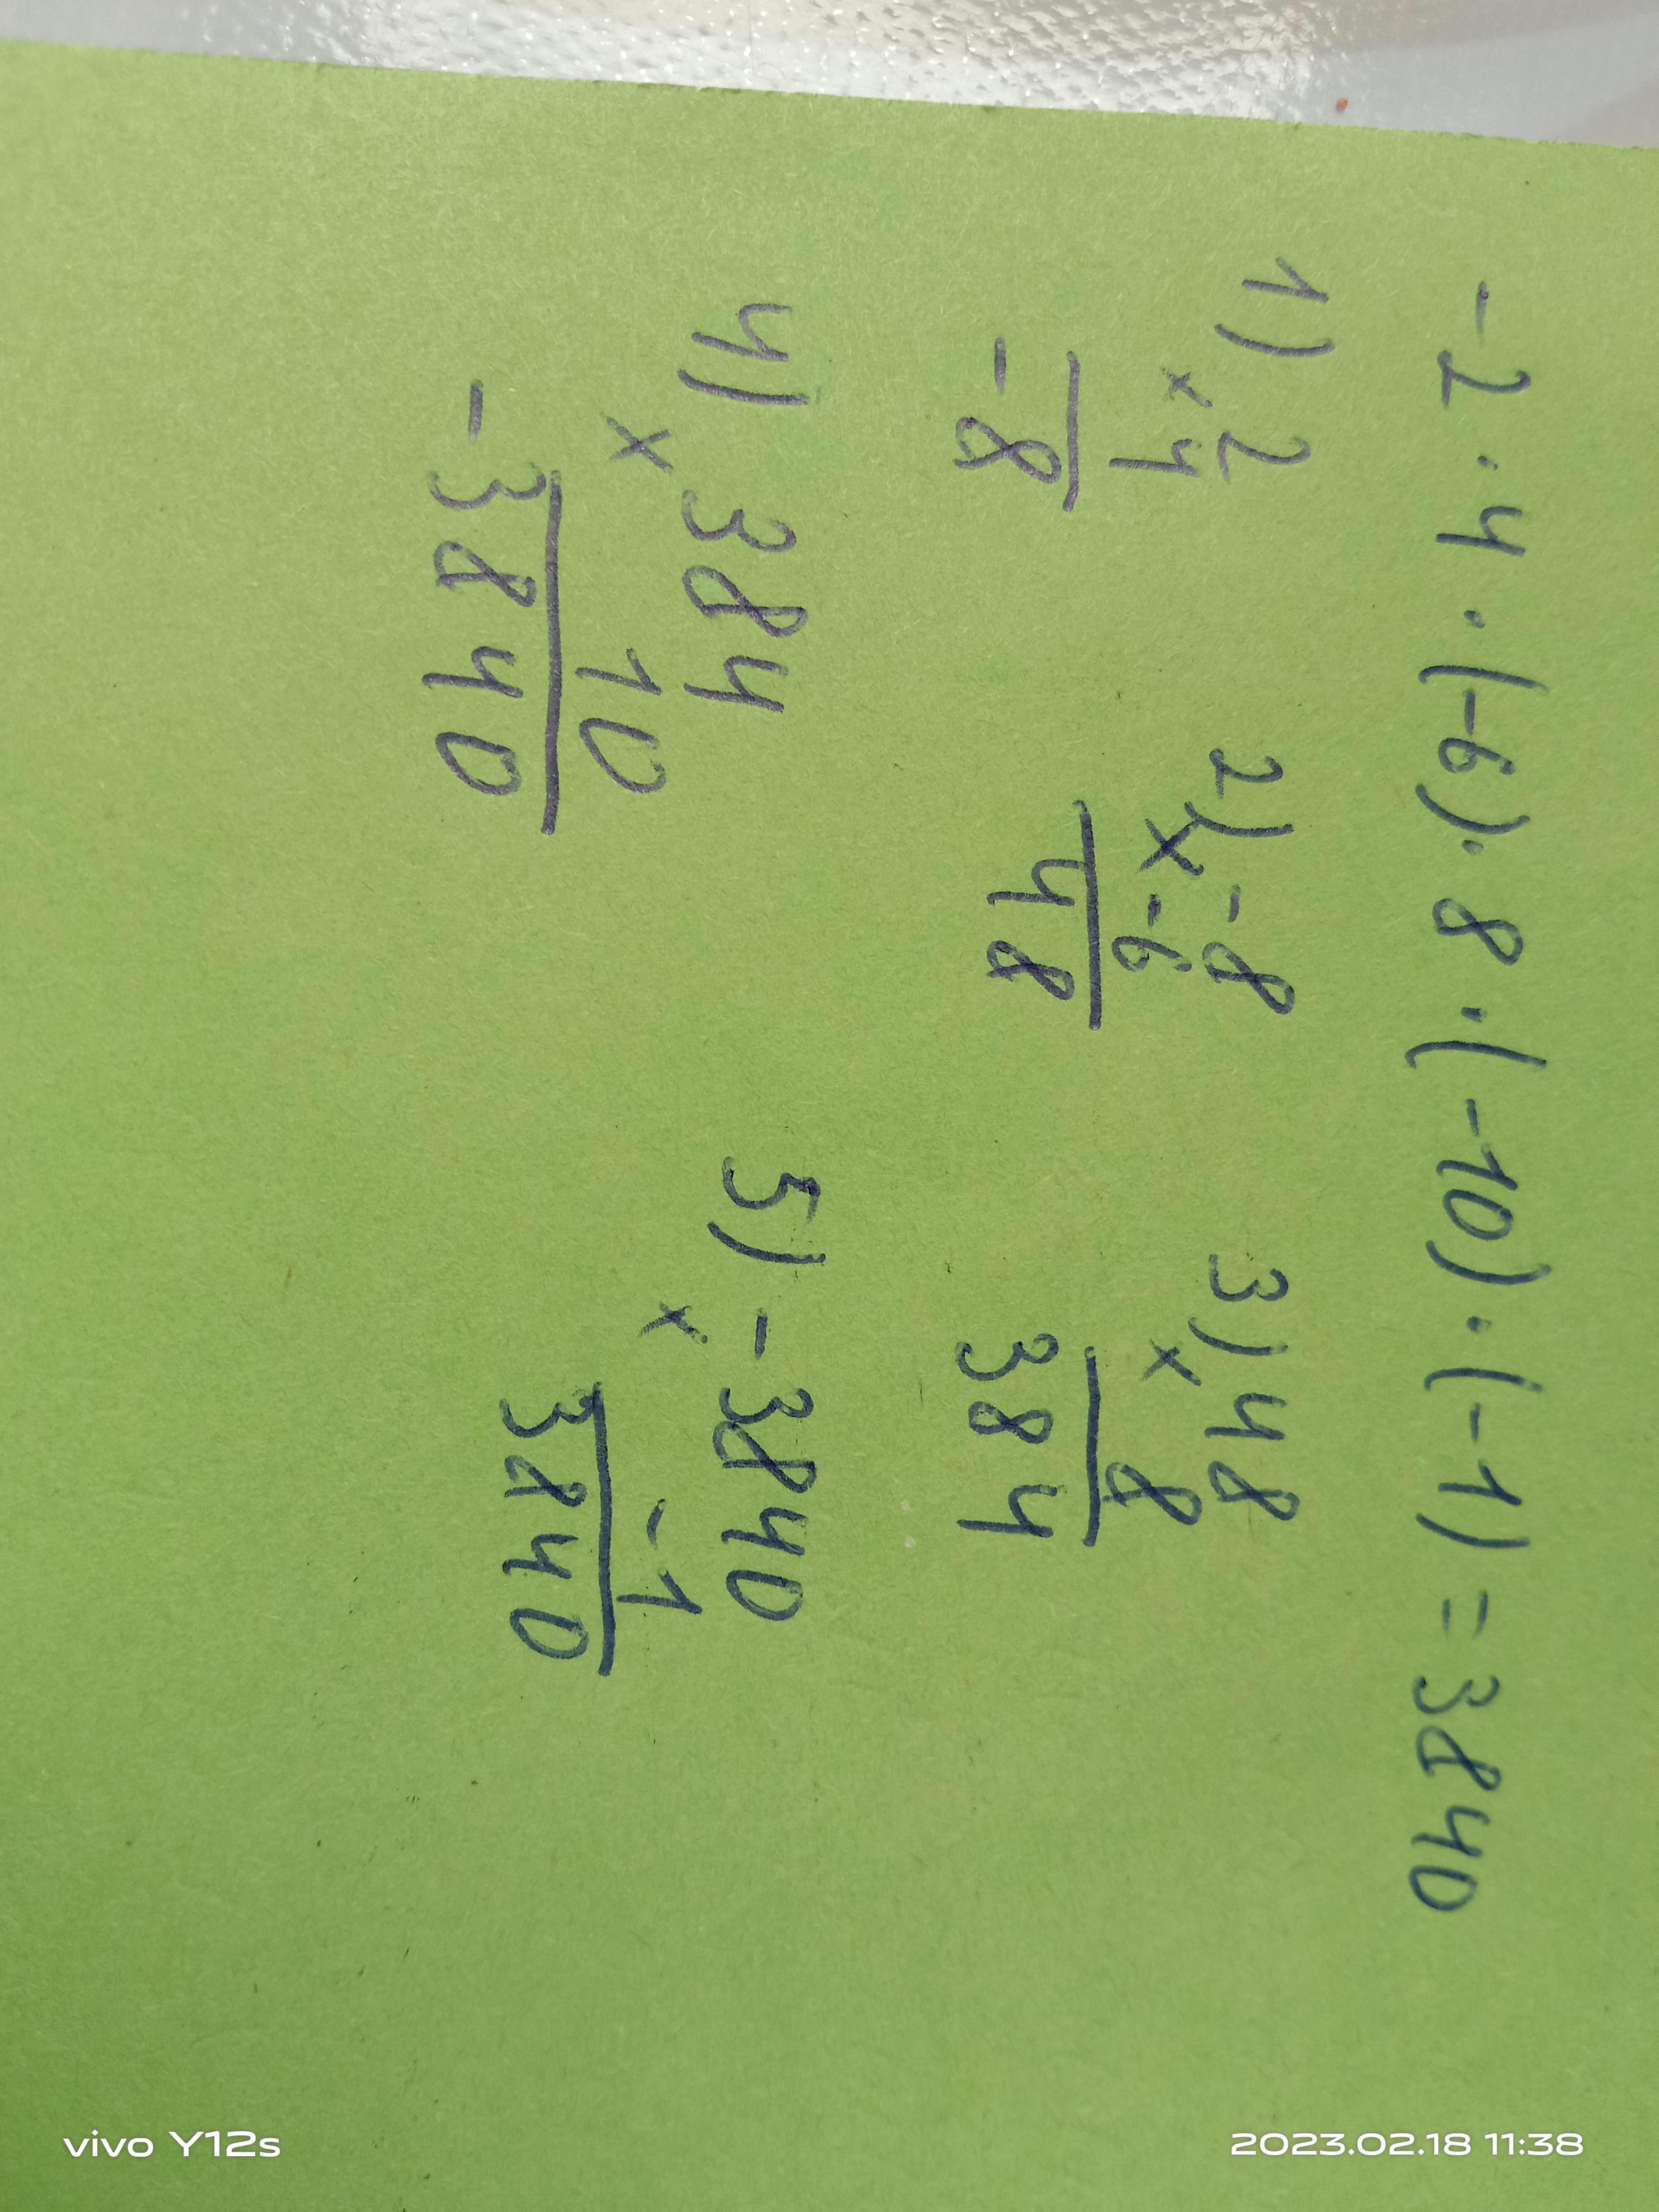 -2·4·(-6)·8·(-10)·(-1)=3840
1) 2
x 4
-8
2) -8
x -6
48
3) 48
x 8
384
4) 384
x 10
-3840
5) -3840
x -1
3840
vivo Y12s
2023.02.18 11:38